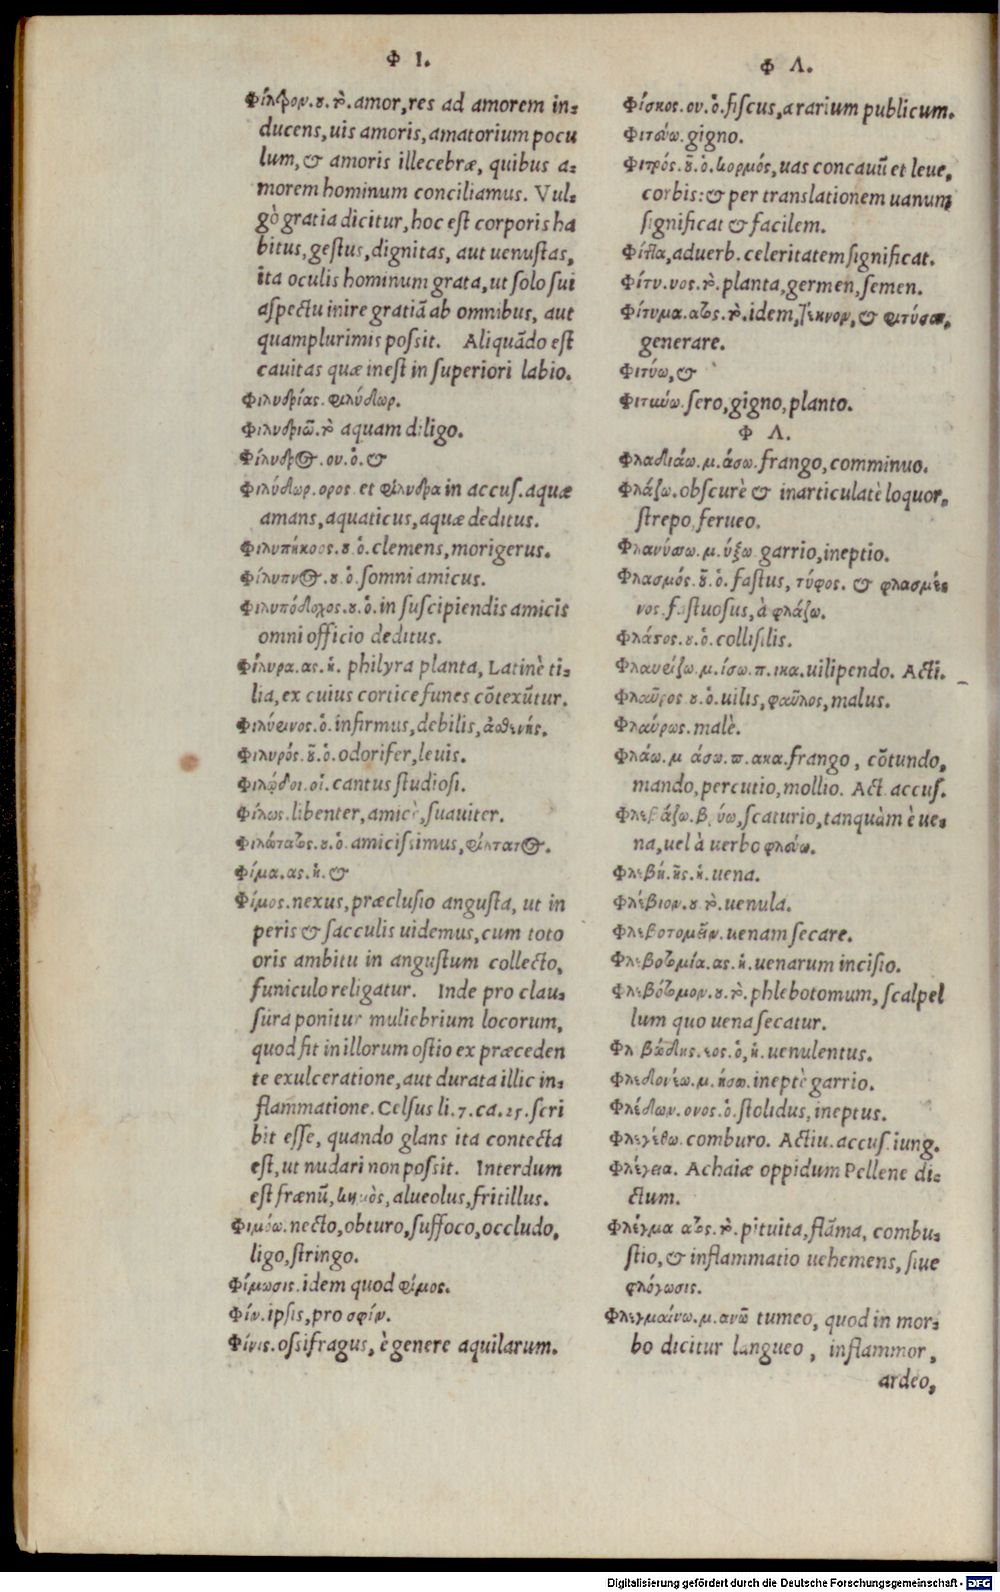 Φ Ι.
Φίλτρον.ου.τὸ.amor,res ad amorem in=
ducens,uis amoris,amatorium pocu
lum,& amoris illecebræ, quibus a=
morem hominum conciliamus. Vul=
gò gratia dicitur,hoc est corporis ha
bitus,gestus,dignitas, aut uenustas,
ita oculis hominum grata,ut solo sui
aspectu inire gratiã ab omnibus, aut
quamplurimis possit. Aliquãdo est
cauitas quæ inest in superiori labio.
Φιλυδρίας.φιλύδωρ.
Φιλυδριῶ.τὸ aquam diligo.
Φίλυδρος.ου.ὁ.&
Φιλύδωρ.ορος.et φίλυδρα in accus.aquæ
amans,aquaticus,aquæ deditus.
Φιλυπήκοος.ου.ὁ.clemens,morigerus.
Φίλυπνος.ου.ὁ.somni amicus.
Φιλυπόδοχος.ου.ὁ.in suscipiendis amicis
omni officio deditus.
Φιλύρα.ας.ἡ. philyra planta, Latinè ti=
lia,ex cuius cortice funes cõtexũtur.
Φιλύρινος.ὁ.infirmus,debilis,ἀσθενής.
Φιλυρός.οῦ.ὁ.odorifer,leuis.
Φιλῳδοι.οἱ.cantus studiosi.
Φίλως.libenter,amicè,suauiter.
Φιλώτατος.ου.ὁ.amicissimus,φίλτατος.
Φίμα.ας.ἡ.&
Φίμος.nexus,præclusio angusta, ut in
peris & sacculis uidemus,cum toto
oris ambitu in angustum collecto,
funiculo religatur. Inde pro clau=
sura ponitur muliebrium locorum,
quod fit in illorum ostio ex præceden
te exulceratione,aut durata illic in=
flammatione. Celsus li.7.ca.25.scri
bit esse, quando glans ita contecta
est,ut nudari non possit. Interdum
est frænũ, κημὸς, alueolus,fritillus.
Φιμόω.necto,obturo,suffoco,occludo,
ligo,stringo.
Φίμωσις.idem quod φίμος.
Φίν.ipsis,pro σφίν.
Φίνις.ossifragus, è genere aquilarum.
Φ Λ.
Φίσκος.ου.ὁ.fiscus,ærarium publicum.
Φιτεύω.gigno.
Φιτρός.οῦ.ὁ.κορμός,uas concauũ et leue,
corbis:& per translationem uanum
significat & facilem.
Φίττα,aduerb.celeritatem significat.
Φίτυ.υος.τὸ.planta,germen,semen.
Φίτυμα.ατος.τὸ.idem,τέκνον,& φιτύσαι,
generare.
Φιτύω,&
Φιτεύω.sero,gigno,planto.
Φ Λ.
Φλαδιάω.μ.άσω.frango,comminuo.
Φλάζω.obscurè & inarticulatè loquor,
strepo,ferueo.
Φλανύσω.μ.ύξω garrio,ineptio.
Φλασμός.οῦ.ὁ.fastus, τύφος. & φλασμέ
νος.fastuosus,à φλάζω.
Φλάστος.ου.ὁ.collisilis.
Φλαυρίζω.μ.ίσω.π.ικα.uilipendo. Acti.
Φλαῦρος ου.ὁ.uilis,φαῦλος,malus.
Φλαύρως.malè.
Φλάω.μ άσω.π.ακα.frango, cõtundo,
mando,percutio,mollio. Act.accus.
Φλεβάζω.β.ύω,scaturio,tanquàm è ue=
na,uel à uerbo φλύω.
Φλεβή.ῆς.ἡ.uena.
Φλέβιον.ου τὸ.uenula.
Φλεβοτομεῖν.uenam secare.
Φλεβοτομία.ας.ἡ.uenarum incisio.
Φλεβότομον.ου.τὸ.phlebotomum, scalpel
lum quo uena secatur.
Φλεβώδης.εος.ὁ,ἡ.uenulentus.
Φλεδονέω.μ.ήσω.ineptè garrio.
Φλέδων.ονος.ὁ.stolidus, ineptus.
Φλεγέθω.comburo. Actiu.accus.iung.
Φλέγεια. Achaiæ oppidum Pellene di=
ctum.
Φλέγμα ατος.τὸ.pituita,flãma, combu=
stio,& inflammatio uehemens, siue
φλόγωσις.
Φλεγμαίνω.μ.ανῶ tumeo, quod in mor=
bo dicitur langueo, inflammor,
ardeo,
Digitalisierung gefördert durch die Deutsche Forschungsgemeinschaft - DFG